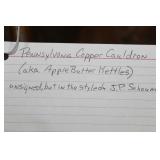 Pennsylvania Copper Cauldron
(aka Apple Butter Kettles)
unsigned, but in the style of J.P. Schaum